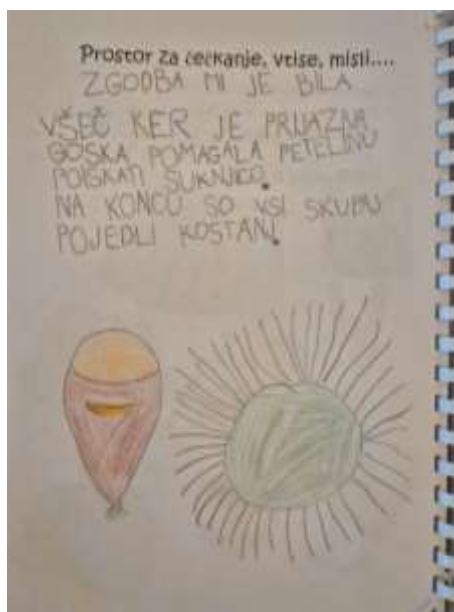 Prostor za čečkanje, vtise, misli....
ZGODBA MI JE BILA
VŠEČ KER JE PRIJAZNA
GOSKA POMAGALA PETELINU
POISKATI SUKNJICO.
NA KONCU SO VSI SKUPAJ
POJEDLI KOSTANJ.